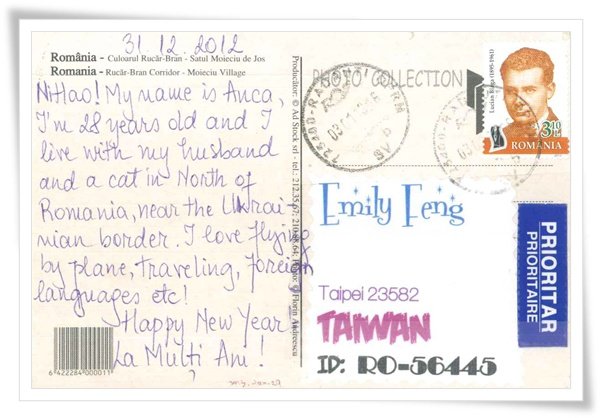 31.12.2012
România - Culoarul Rucăr-Bran - Satul Moieciu de Jos
Romania - Rucăr-Bran Corridor - Moieciu Village
NiHao! My name is Anca,
I'm 28 years old and I
live with my husband
and a cat in North of
Romania, near the Ukrai
nian border. I love flying
by plane, traveling, foreign
languages etc!
Happy New Year
La Mulți Ani!
6 422284 000011
PHOTO COLLECTION
Lucian Blaga (1895-1961)
3.10
ROMÂNIA
Emily Feng
Taipei 23582
TAIWAN
ID: RO-56445
PRIORITAR
PRIORITAIRE